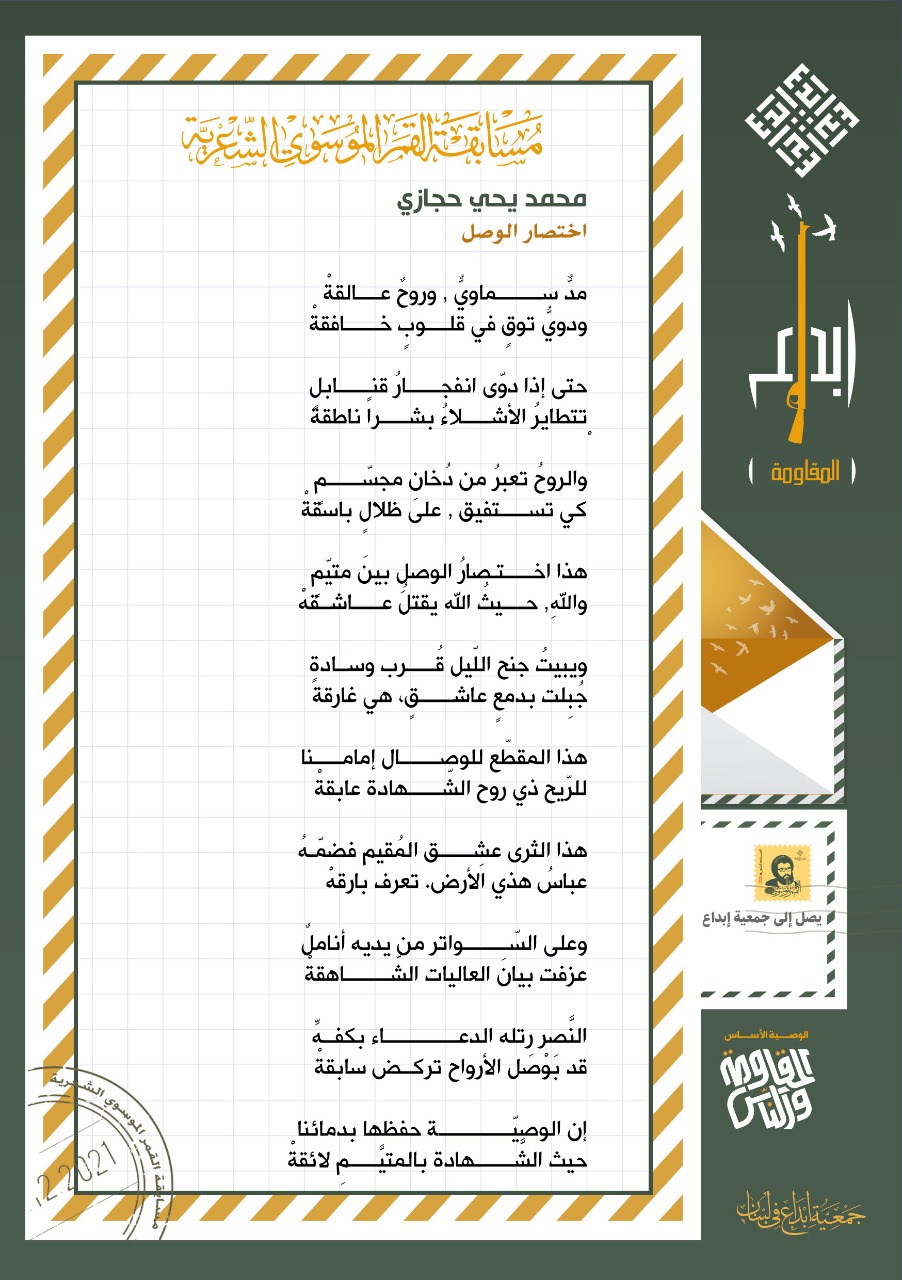 مُسَابَقَةُ القَمَرِ المُوسَوِيِّ الشِّعْرِيَّة
محمد يحي حجازي
اختصار الوصل
مدٌّ ســـــماويٌّ , وروحٌ عـــالقةْ
ودويُّ توقٍ في قلـــوبٍ خـــــافقةْ
حتى إذا دوّى انفجـــــارُ قنـــابلٍ
تتطايرُ الأشـــلاءُ بشـــرا ناطقةً
والروحُ تعبرُ من دُخانٍ مجسّـــــمٍ
كي تســـتفيق , على ظلالٍ باسقةْ
هذا اخـــتصارُ الوصلِ بينَ متيّمٍ
واللّهِ, حـــيثُ اللّه يقتلُ عـــاشقهْ
ويبيتُ جنح اللّيل قُـــرب وسـادةٍ
جُبِلت بدمعِ عاشـــقٍ، هي غارقةْ
هذا المقطّع للوصـــــال إمامـــنا
للرّيح ذي روح الشّـــــهادة عابقةْ
هذا الثرى عشـــق المُقيم فضمّـهُ
عباسُ هذي الأرض. تعرف بارقهْ
وعلى السّـــــواتر من يديه أناملٌ
عزفت بيانَ العاليات الشّـــــاهقةْ
النَّصر رتله الدعـــــــاء بكفـهِّ
قد بَوْصَل الأرواح تركـض سابقةْ
إن الوصيّـــــــة حفظها بدمائنا
حيث الشّـــــهادة بالمتيَّـــمِ لائقةْ
إبداع
المقاومة
يصل إلى جمعية إبداع
الوصـية الأســاس
المقاومة
والناس
جمعية إبداع في لبنان
مسابقة القمر الموسوي الشعرية
2 2021